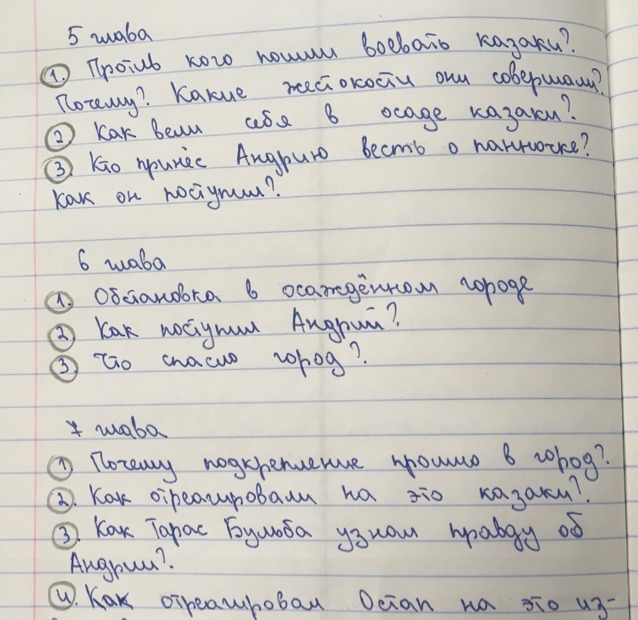 5 глава
1. Против кого пошли воевать казаки?
Почему? Какие жестокости они совершали?
2 Как вели себя в осаде казаки?
3. Кто принёс Андрию весть о панночке?
Как он поступил?
6 глава
1. Обстановка в осаждённом городе
2. Как поступил Андрий?
3. Что спасло город?
7 глава
1 Почему подкрепление прошло в город?
2. Как отреагировали на это казаки?
3. Как Тарас Бульба узнал правду об
Андрии?
4. Как отреагировал Остап на это из-